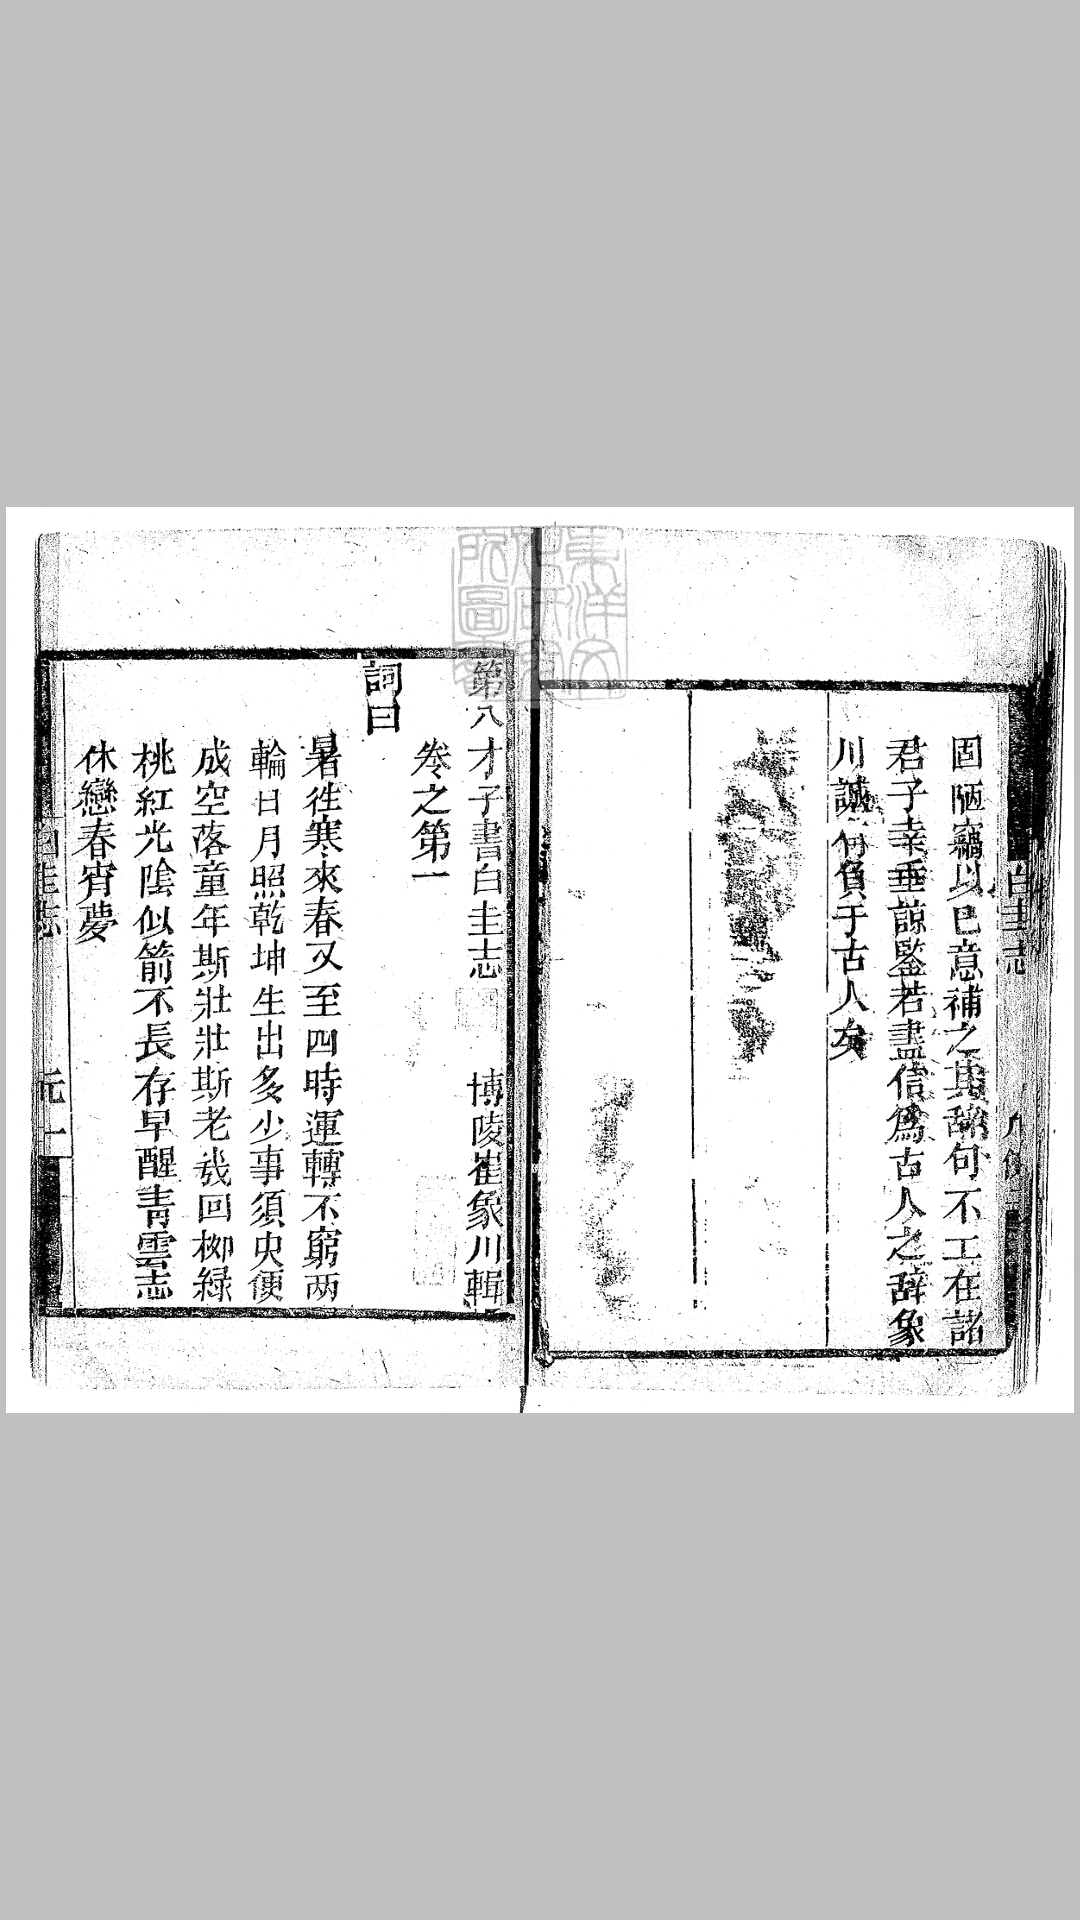 固陋竊以己意補之其辭句不工在諸
君子幸垂諒鑒若盡信爲古人之辞象
川誠有負于古人矣
白圭志
第八才子書白圭志
博陵崔象川輯
卷之第一
詞曰
暑徃寒來春又至四時運轉不窮兩
輪日月照乾坤生出多少事須臾便
成空落童年斯壯壯斯老幾回栁緑
桃紅光陰似箭不長存早醒青雲志
休戀春宵夢
白圭志